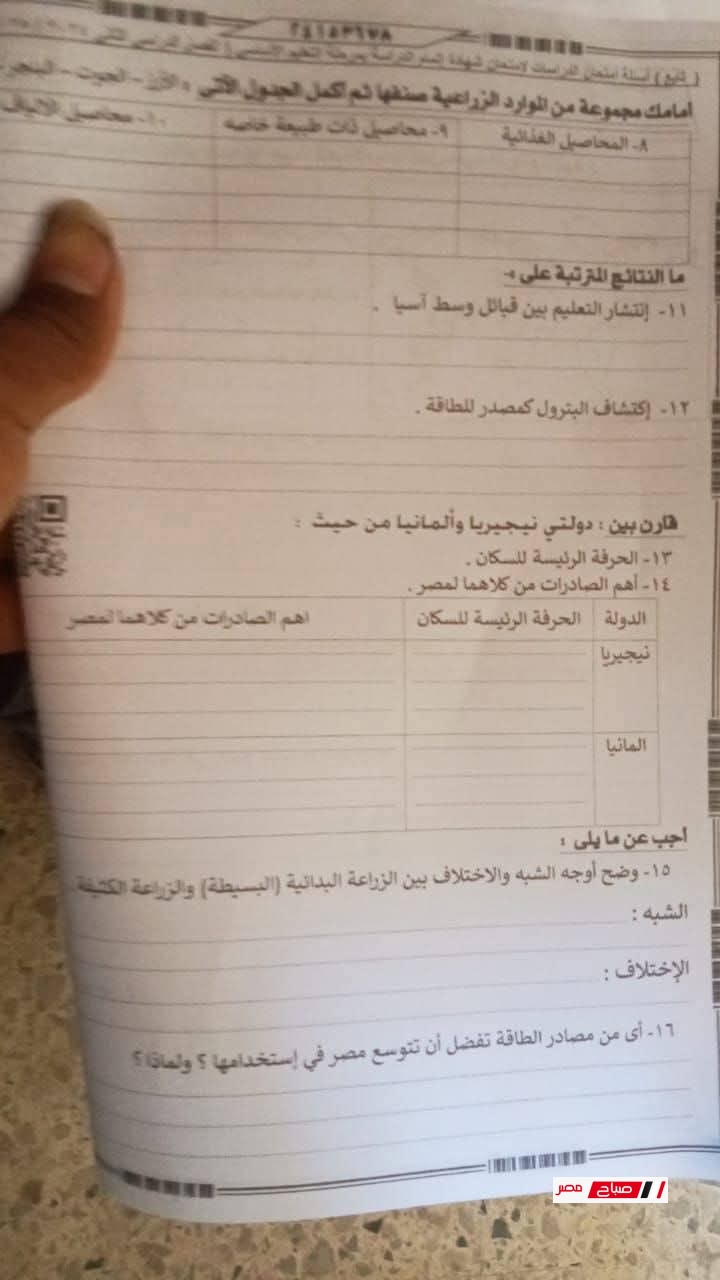 ٢٤١٥٣٦٧٨
( تابع ) أسئلة امتحان الدراسات لامتحان شهادة إتمام الدراسة بمرحلة التعليم الأساسي ( الفصل الدراسي الثاني
أمامك مجموعة من الموارد الزراعية صنفها ثم أكمل الجدول الآتي : الأرز -
٨- المحاصيل الغذائية
٩- محاصيل ذات طبيعة خاصه
١٠- محاصيل الألياف
ما النتائج المترتبة على :-
١١- إنتشار التعليم بين قبائل وسط آسيا .
١٢- إكتشاف البترول كمصدر للطاقة .
قارن بين : دولتي نيجيريا وألمانيا من حيث :
١٣- الحرفة الرئيسة للسكان .
١٤- أهم الصادرات من كلاهما لمصر .
الدولة
الحرفة الرئيسة للسكان
اهم الصادرات من كلاهما لمصر
نيجيريا
المانيا
أجب عن ما يلى :
١٥- وضح أوجه الشبه والاختلاف بين الزراعة البدائية (البسيطة) والزراعة الكثيفة.
الشبه :
الإختلاف :
١٦- أى من مصادر الطاقة تفضل أن تتوسع مصر في إستخدامها ؟ ولماذا ؟
صباح مصر